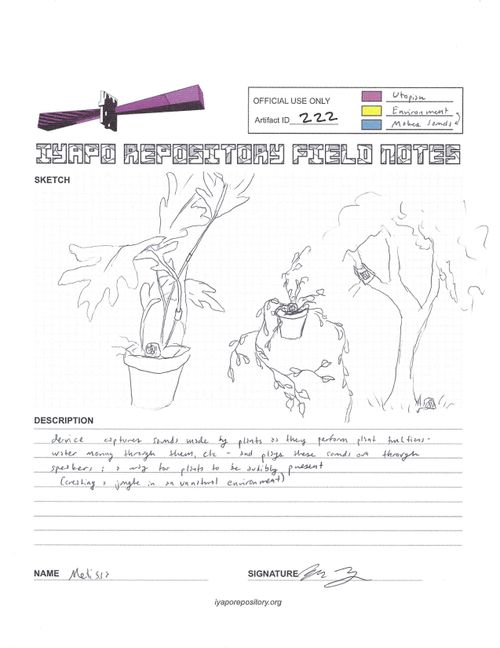 OFFICIAL USE ONLY
Artifact ID 222
Utopian
Environment
Makes Sounds
IYAPO REPOSITORY FIELD NOTES
SKETCH
DESCRIPTION
device captures sounds made by plants as they perform plant functions -
water moving through them, etc - and plays these sounds out through
speakers; a way for plants to be audibly present
(creating a jungle in an unnatural environment)
NAME Melissa
SIGNATURE
iyaporepository.org